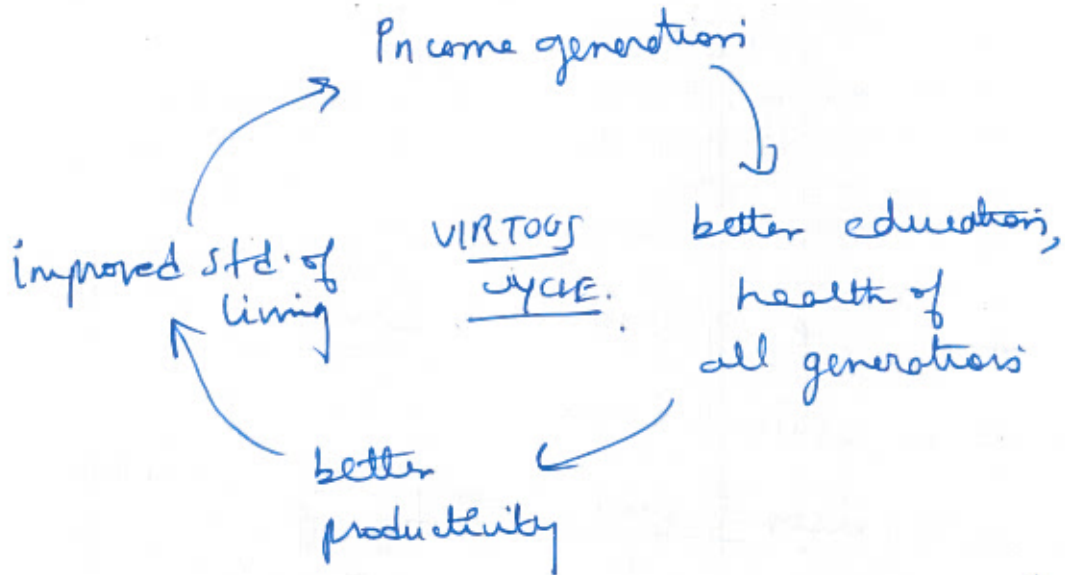 Income generation
better education,
health of
all generations
better
productivity
improved std. of
living
VIRTOUS
CYCLE.